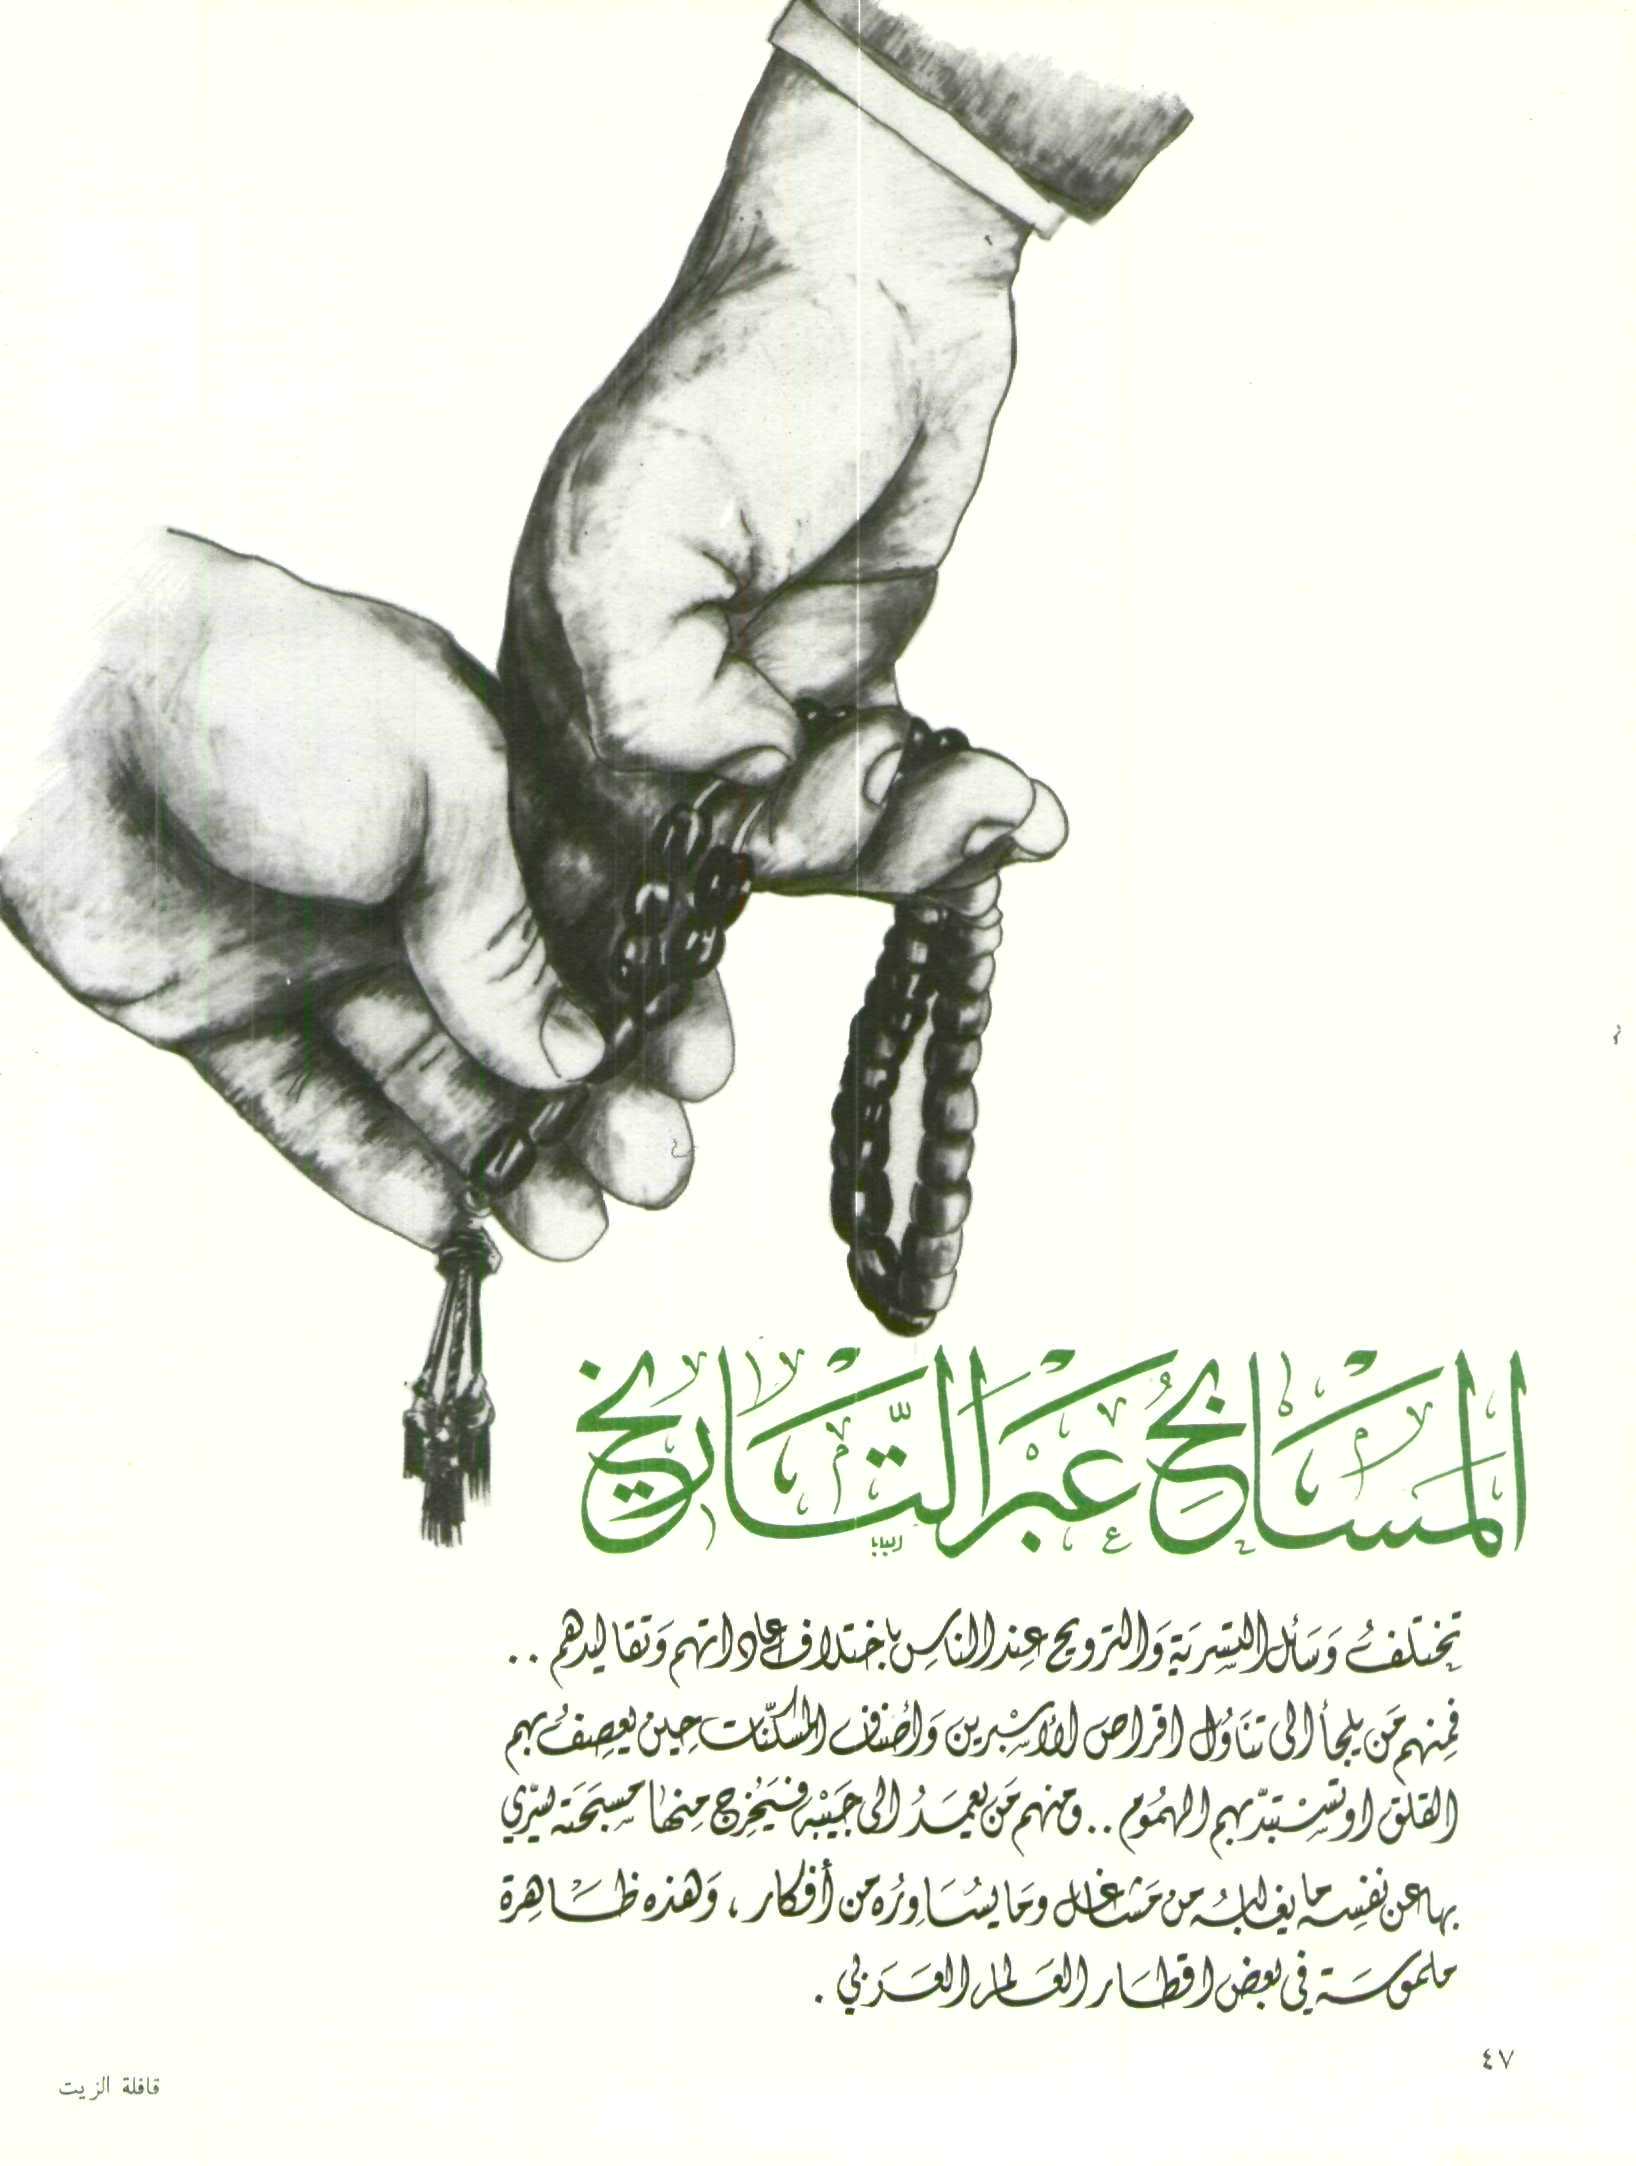 المسَابِح عبر التَّاريخ
تختلفُ وَسَائل التسرية وَالترويح عند الناسِ باختلاف عاداتهم وَتقاليدهم ..
فمِنهم مَن يلجأ الى تنَاوُل اقراص الأسْبرين وَأصناف المسكّنات حِين يعصِفُ بهم
القلق او تسْتبدّ بهم الهمُوم .. ومنهم مَن يعمَدُ الى جَيْبه فيُخرج مِنها مسبَحَة يسَرّي
بها عن نفسِه ما يغالبُه من مَشاغل ومَا يسَاورُه من أفكار ، وَهذه ظاهِرة
ملموسَة في بعض اقطار العَالم العَرَبي .
٤٧
قافلة الزيت